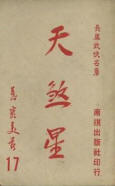 長篇武俠名著
天煞星
17
南琪出版社印行